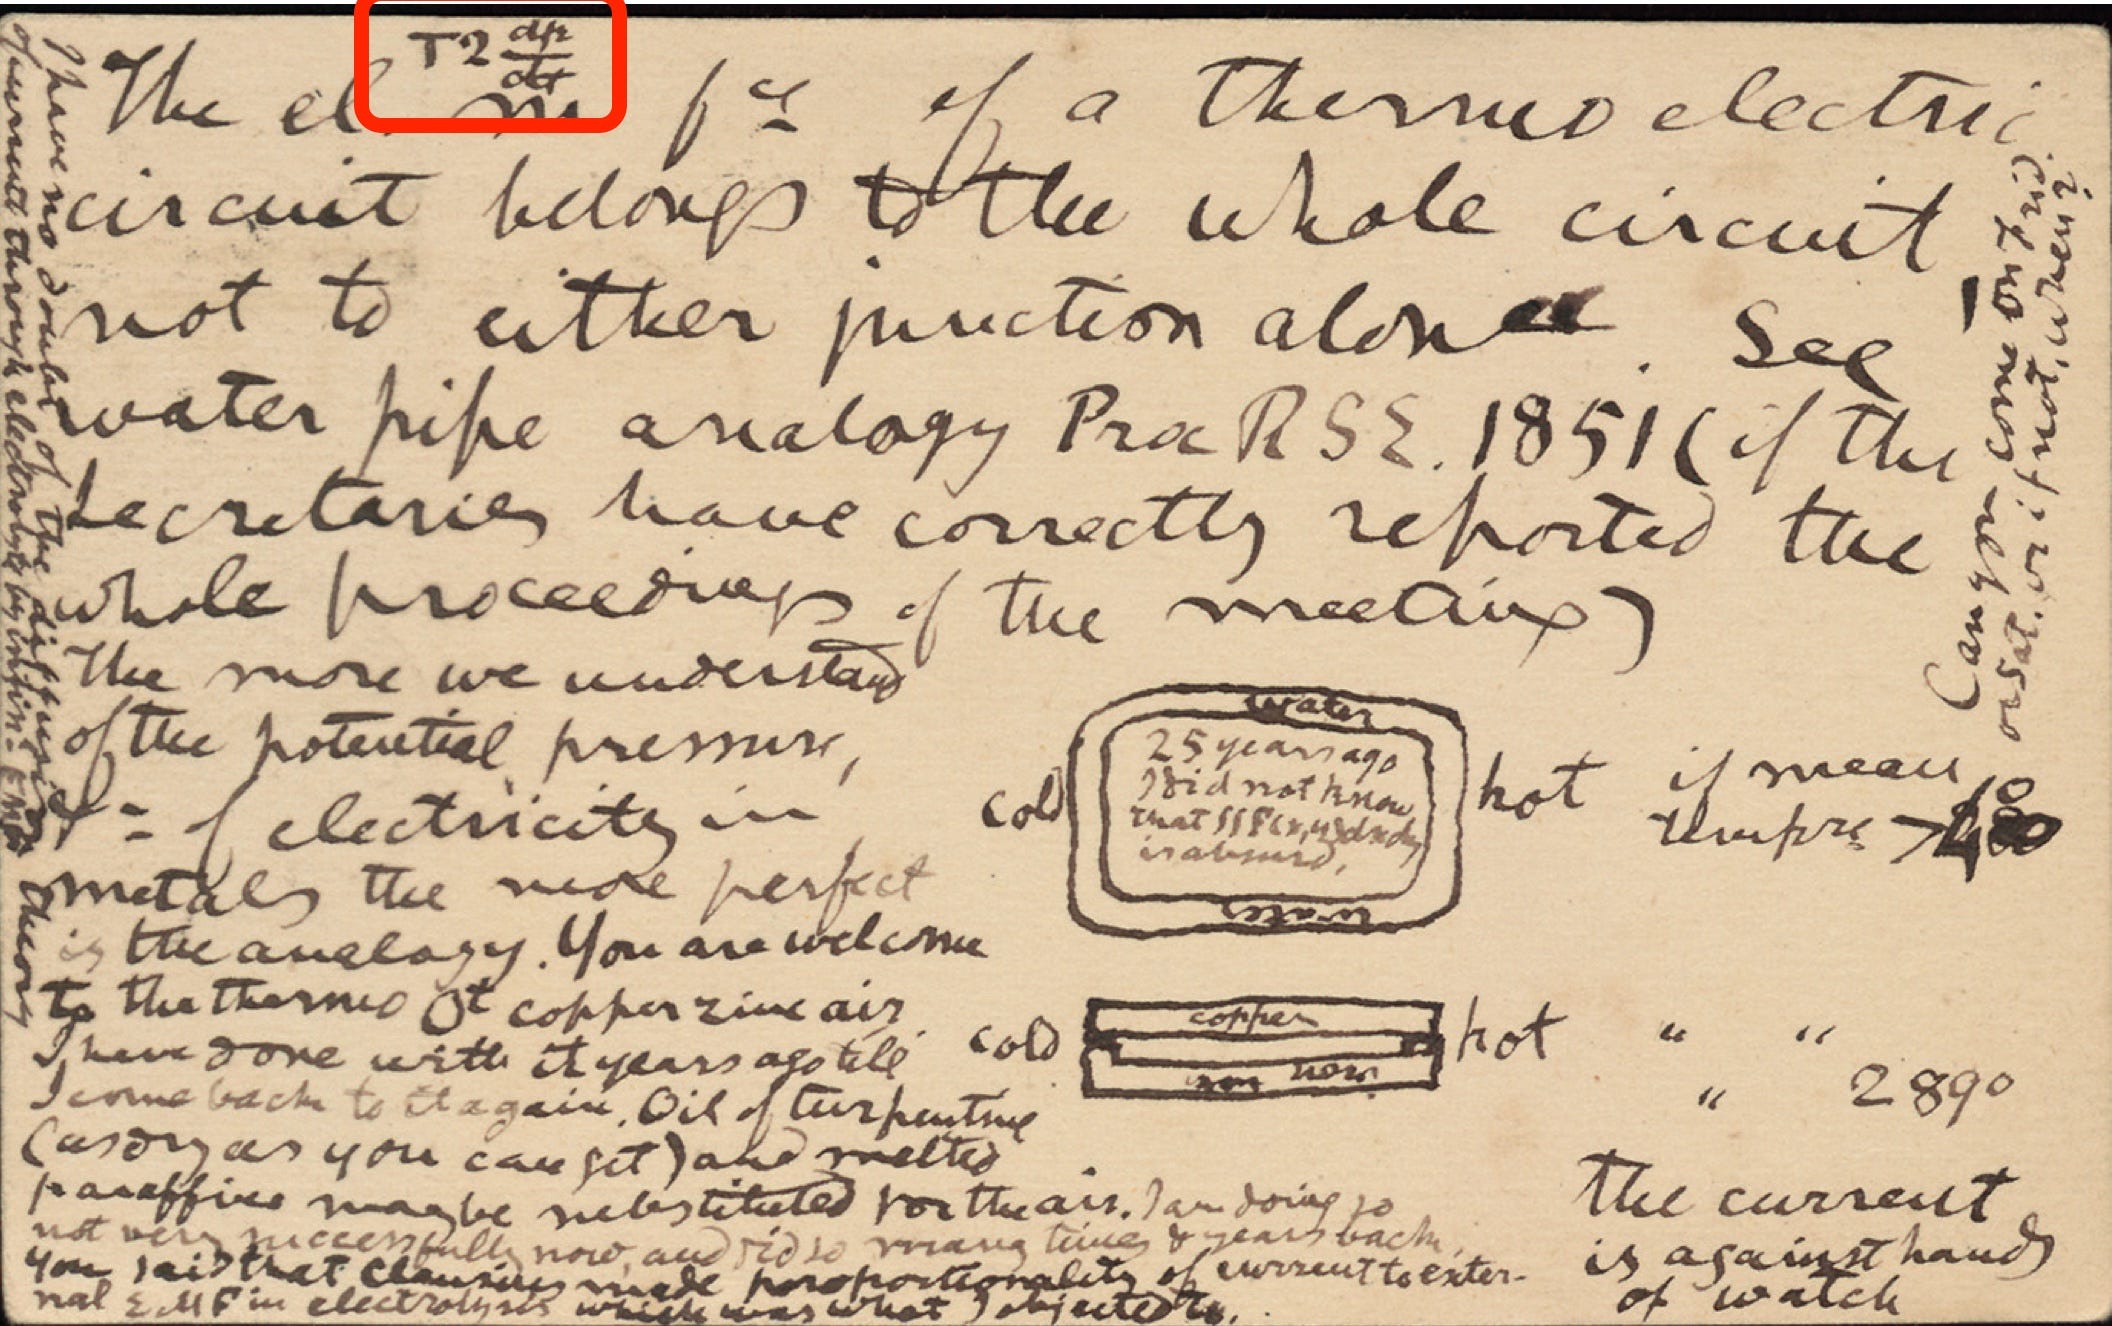 T 2 dp/dt
The el. m. fce of a thermo electric
circuit belongs to the whole circuit
not to either junction alone. See
water pipe analogy Proc R S E. 1851 (if the
Secretaries have correctly reported the
whole proceedings of the meeting)
The more we understand
of the potential, pressure,
of electricity in
metals the more perfect
is the analogy. You are welcome
to the thermo copper zinc air
I have done with it years ago till
I come back to it again. Oil of turpentine
(as dry as you can get) and melted
paraffine may be substituted for the air. I am doing so
not very successfully now, and did so many times & years back.
You said that Clausius made proportionality of current to exter-
nal E M F in electrolysis which was what I objected to.
I have no doubt of the diffusion
of current through electrolyte by infin. EMF
theory
Can you come on Frid.
or Sat. or if not, when?
water
25 years ago
I did not know
that ∫∫F(x,y)dxdy
is absurd.
water
cold
hot if mean
tempre > 40
cold
copper
iron
hot " "
" 2890
The current
is against hands
of watch